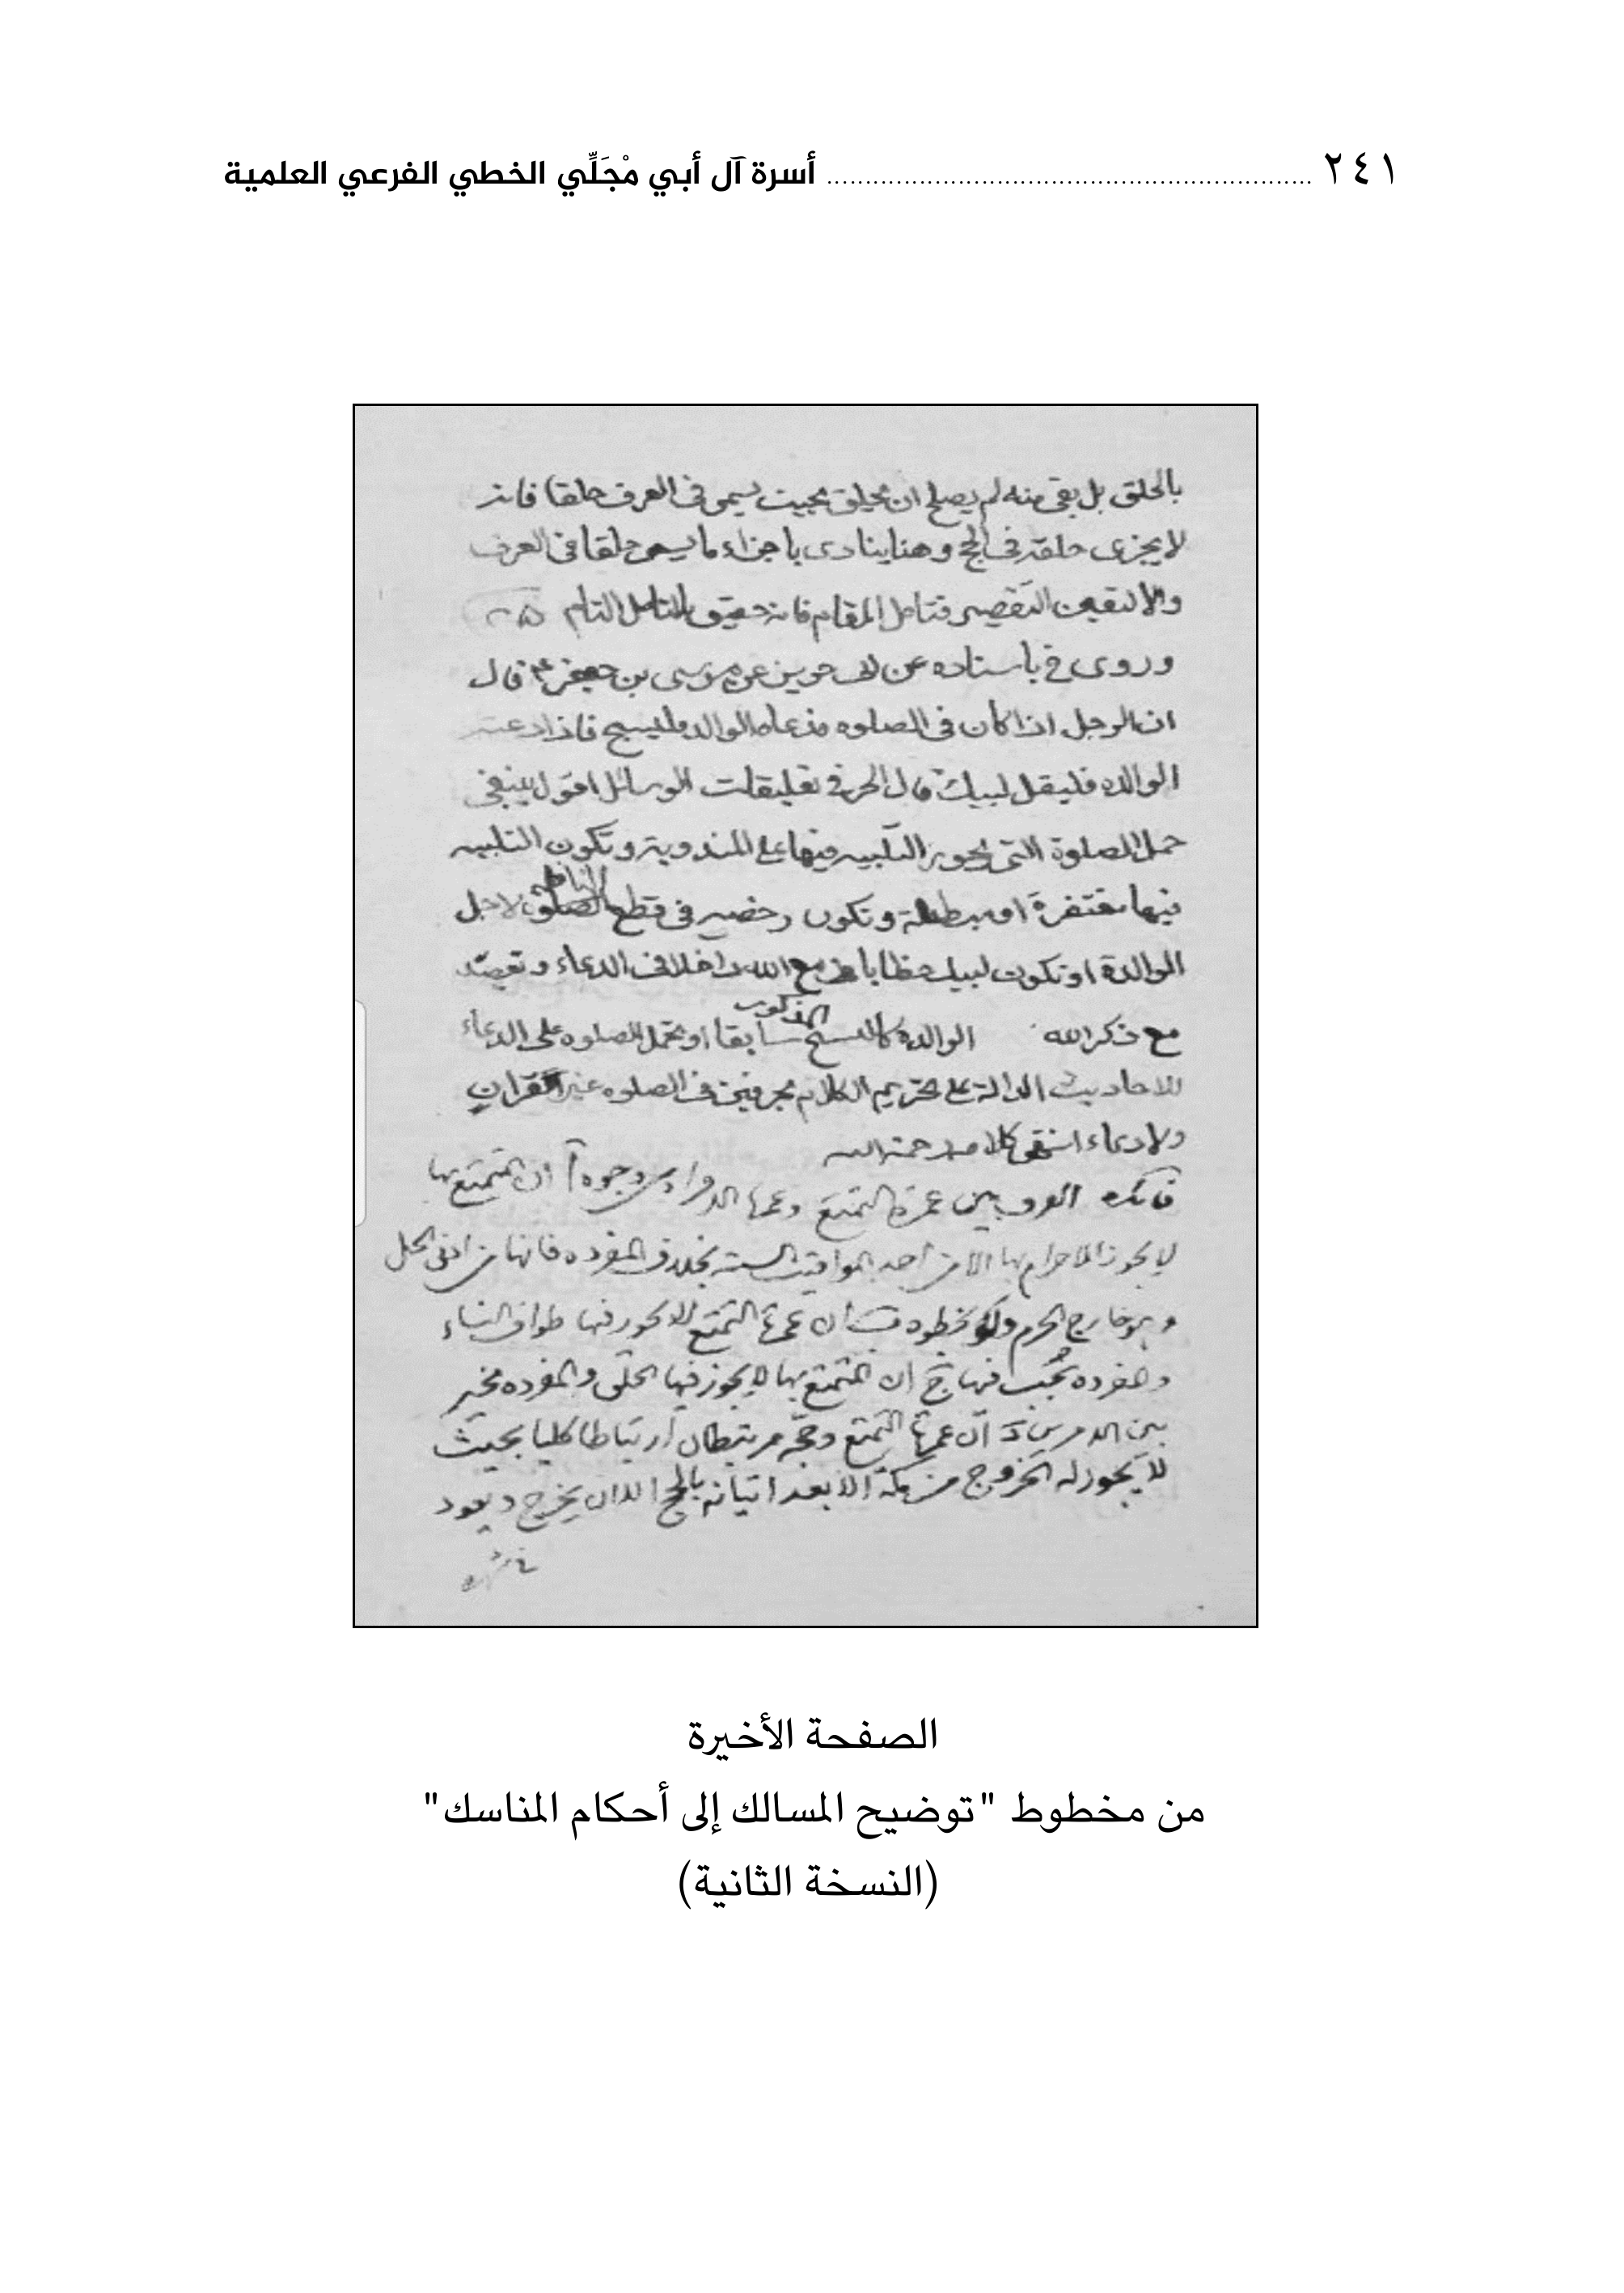 ٢٤١ ........ أسرة آل أبي مْجَلِّي الخطي الفرعي العلمية
بالحلق بل بقي منه لم يصلح ان يحلق بحيث يسمى في العرف حلقا فانه
لا يجزى حلقه في الحج وهنا ينادى باجزاء ما يسمى حلقا في العرف
والا لتعين التقصير فتامل المقام فانه حقيق بالتامل التام
وروى باسناده عن موسى بن جعفر ع قال
ان الرجل اذا كان في الصلوه فدعاه الوالد فليسبح فاذا دعته
الوالده فليقل لبيك قال الحر في تعليقات الوسائل اقول ينبغي
حمل الصلوة التي يجوز التلبيه فيها على المندوبة وتكون التلبيه
فيها مغتفرة او مبطلة وتكون رخصه في قطع الصلوة النافله لاجل
الوالدة او تكون لبيك خطابا مع الله داخلا في الدعاء وتقصد
مع ذكر الله الوالدة كالتسبيح المذكور سابقا او تحمل الصلوه على الدعاء
للاحاديث الدالة على تحريم الكلام بحرفين في الصلوه غير القران
ولا دعاء انتهى كلامه رحمة الله
فائده الفرق بين عمرة التمتع وعمرة الافراد من وجوه آ ان المتمتع بها
لا يجوز الاحرام بها الا من احد المواقيت الستة بخلاف المفرده فانها من ادنى الحل
وهو خارج الحرم ولو بخطوه ب ان عمرة التمتع لا يجوز فيها طواف النساء
والمفرده يجب فيها ج ان المتمتع بها لا يجوز فيها الحلق والمفرده مخير
بين الامرين د ان عمرة التمتع وحجه مرتبطان ارتباطا كليا بحيث
لا يجوز له الخروج من مكة الا بعد اتيانه بالحج الا ان يخرج ويعود
الصفحة الأخيرة
من مخطوط "توضيح المسالك إلى أحكام المناسك"
(النسخة الثانية)